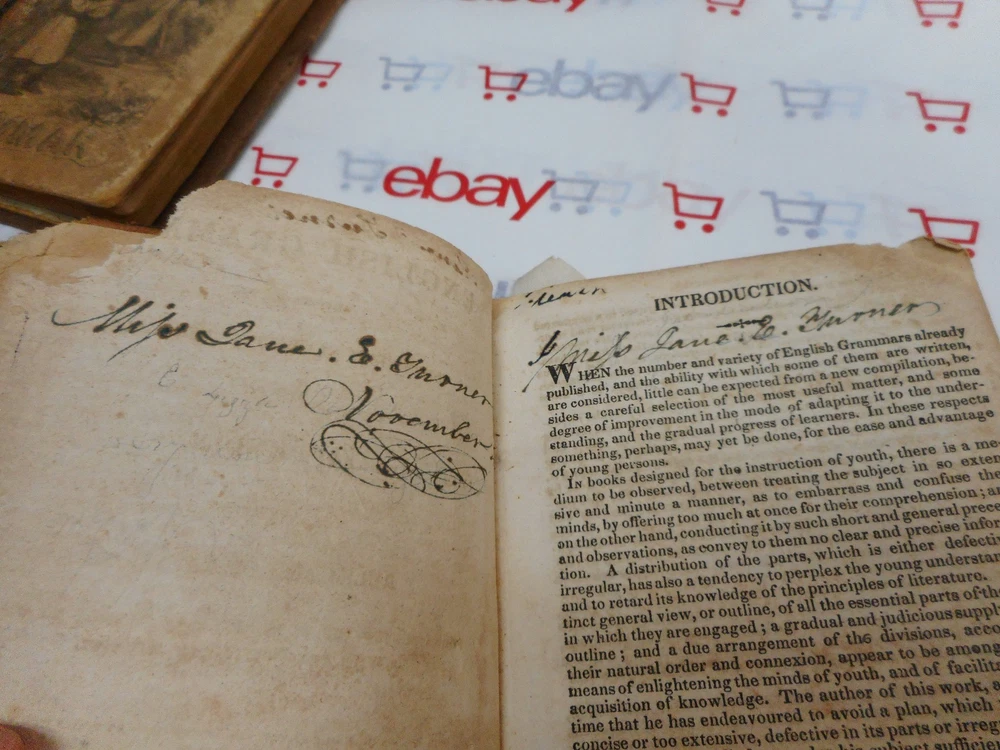 ebay
ebay
ebay
Miss Jane. E. Turner
November
INTRODUCTION.
Miss Jane. E. Turner
WHEN the number and variety of English Grammars already
published, and the ability with which some of them are written,
are considered, little can be expected from a new compilation, be-
sides a careful selection of the most useful matter, and some
degree of improvement in the mode of adapting it to the under-
standing, and the gradual progress of learners. In these respects
something, perhaps, may yet be done, for the ease and advantage
of young persons.
IN books designed for the instruction of youth, there is a me
dium to be observed, between treating the subject in so exten
sive and minute a manner, as to embarrass and confuse the
minds, by offering too much at once for their comprehension; an
on the other hand, conducting it by such short and general prece
and observations, as convey to them no clear and precise infor
tion. A distribution of the parts, which is either defecti
irregular, has also a tendency to perplex the young understan
and to retard its knowledge of the principles of literature.
tinct general view, or outline, of all the essential parts of the
in which they are engaged; a gradual and judicious suppl
outline; and a due arrangement of the divisions, acco
their natural order and connexion, appear to be among
means of enlightening the minds of youth, and of facilita
acquisition of knowledge. The author of this work, a
time that he has endeavoured to avoid a plan, which
concise or too extensive, defective in its parts or irreg